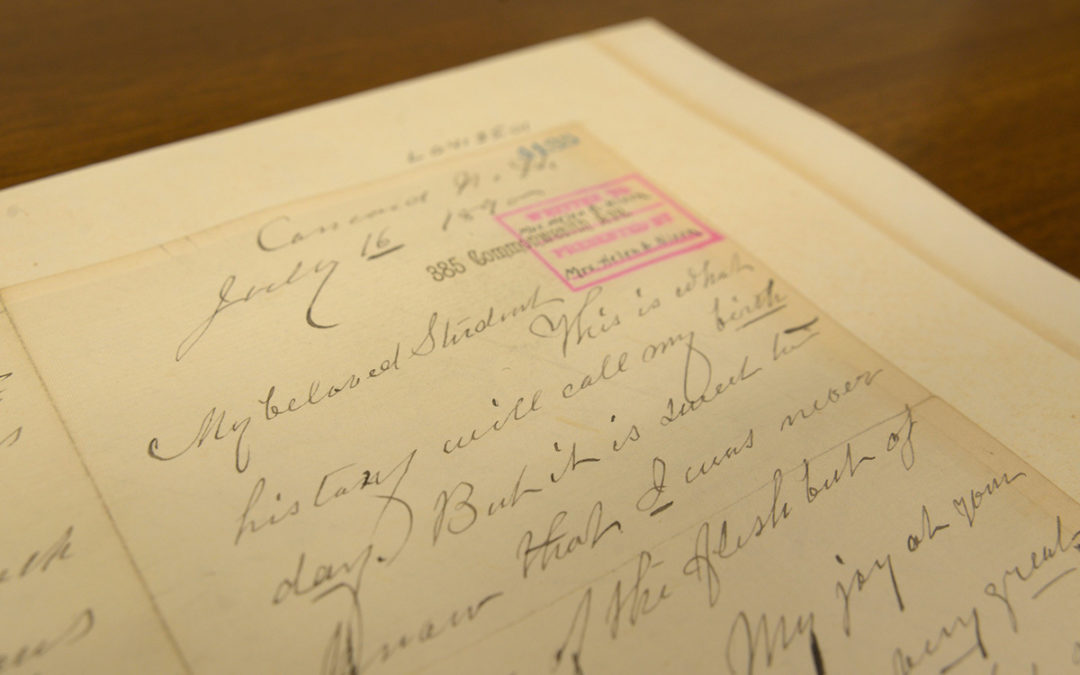 L
Concord N. H.
July 16 189
385 Commonwealth Ave.
WRITTEN TO
PRESENTED BY
Mrs. Helen A. Nixon
My beloved Student
This is what
history will call my birth
day. But it is sweet to
know that I was never
of the flesh but of
My joy at your
very great